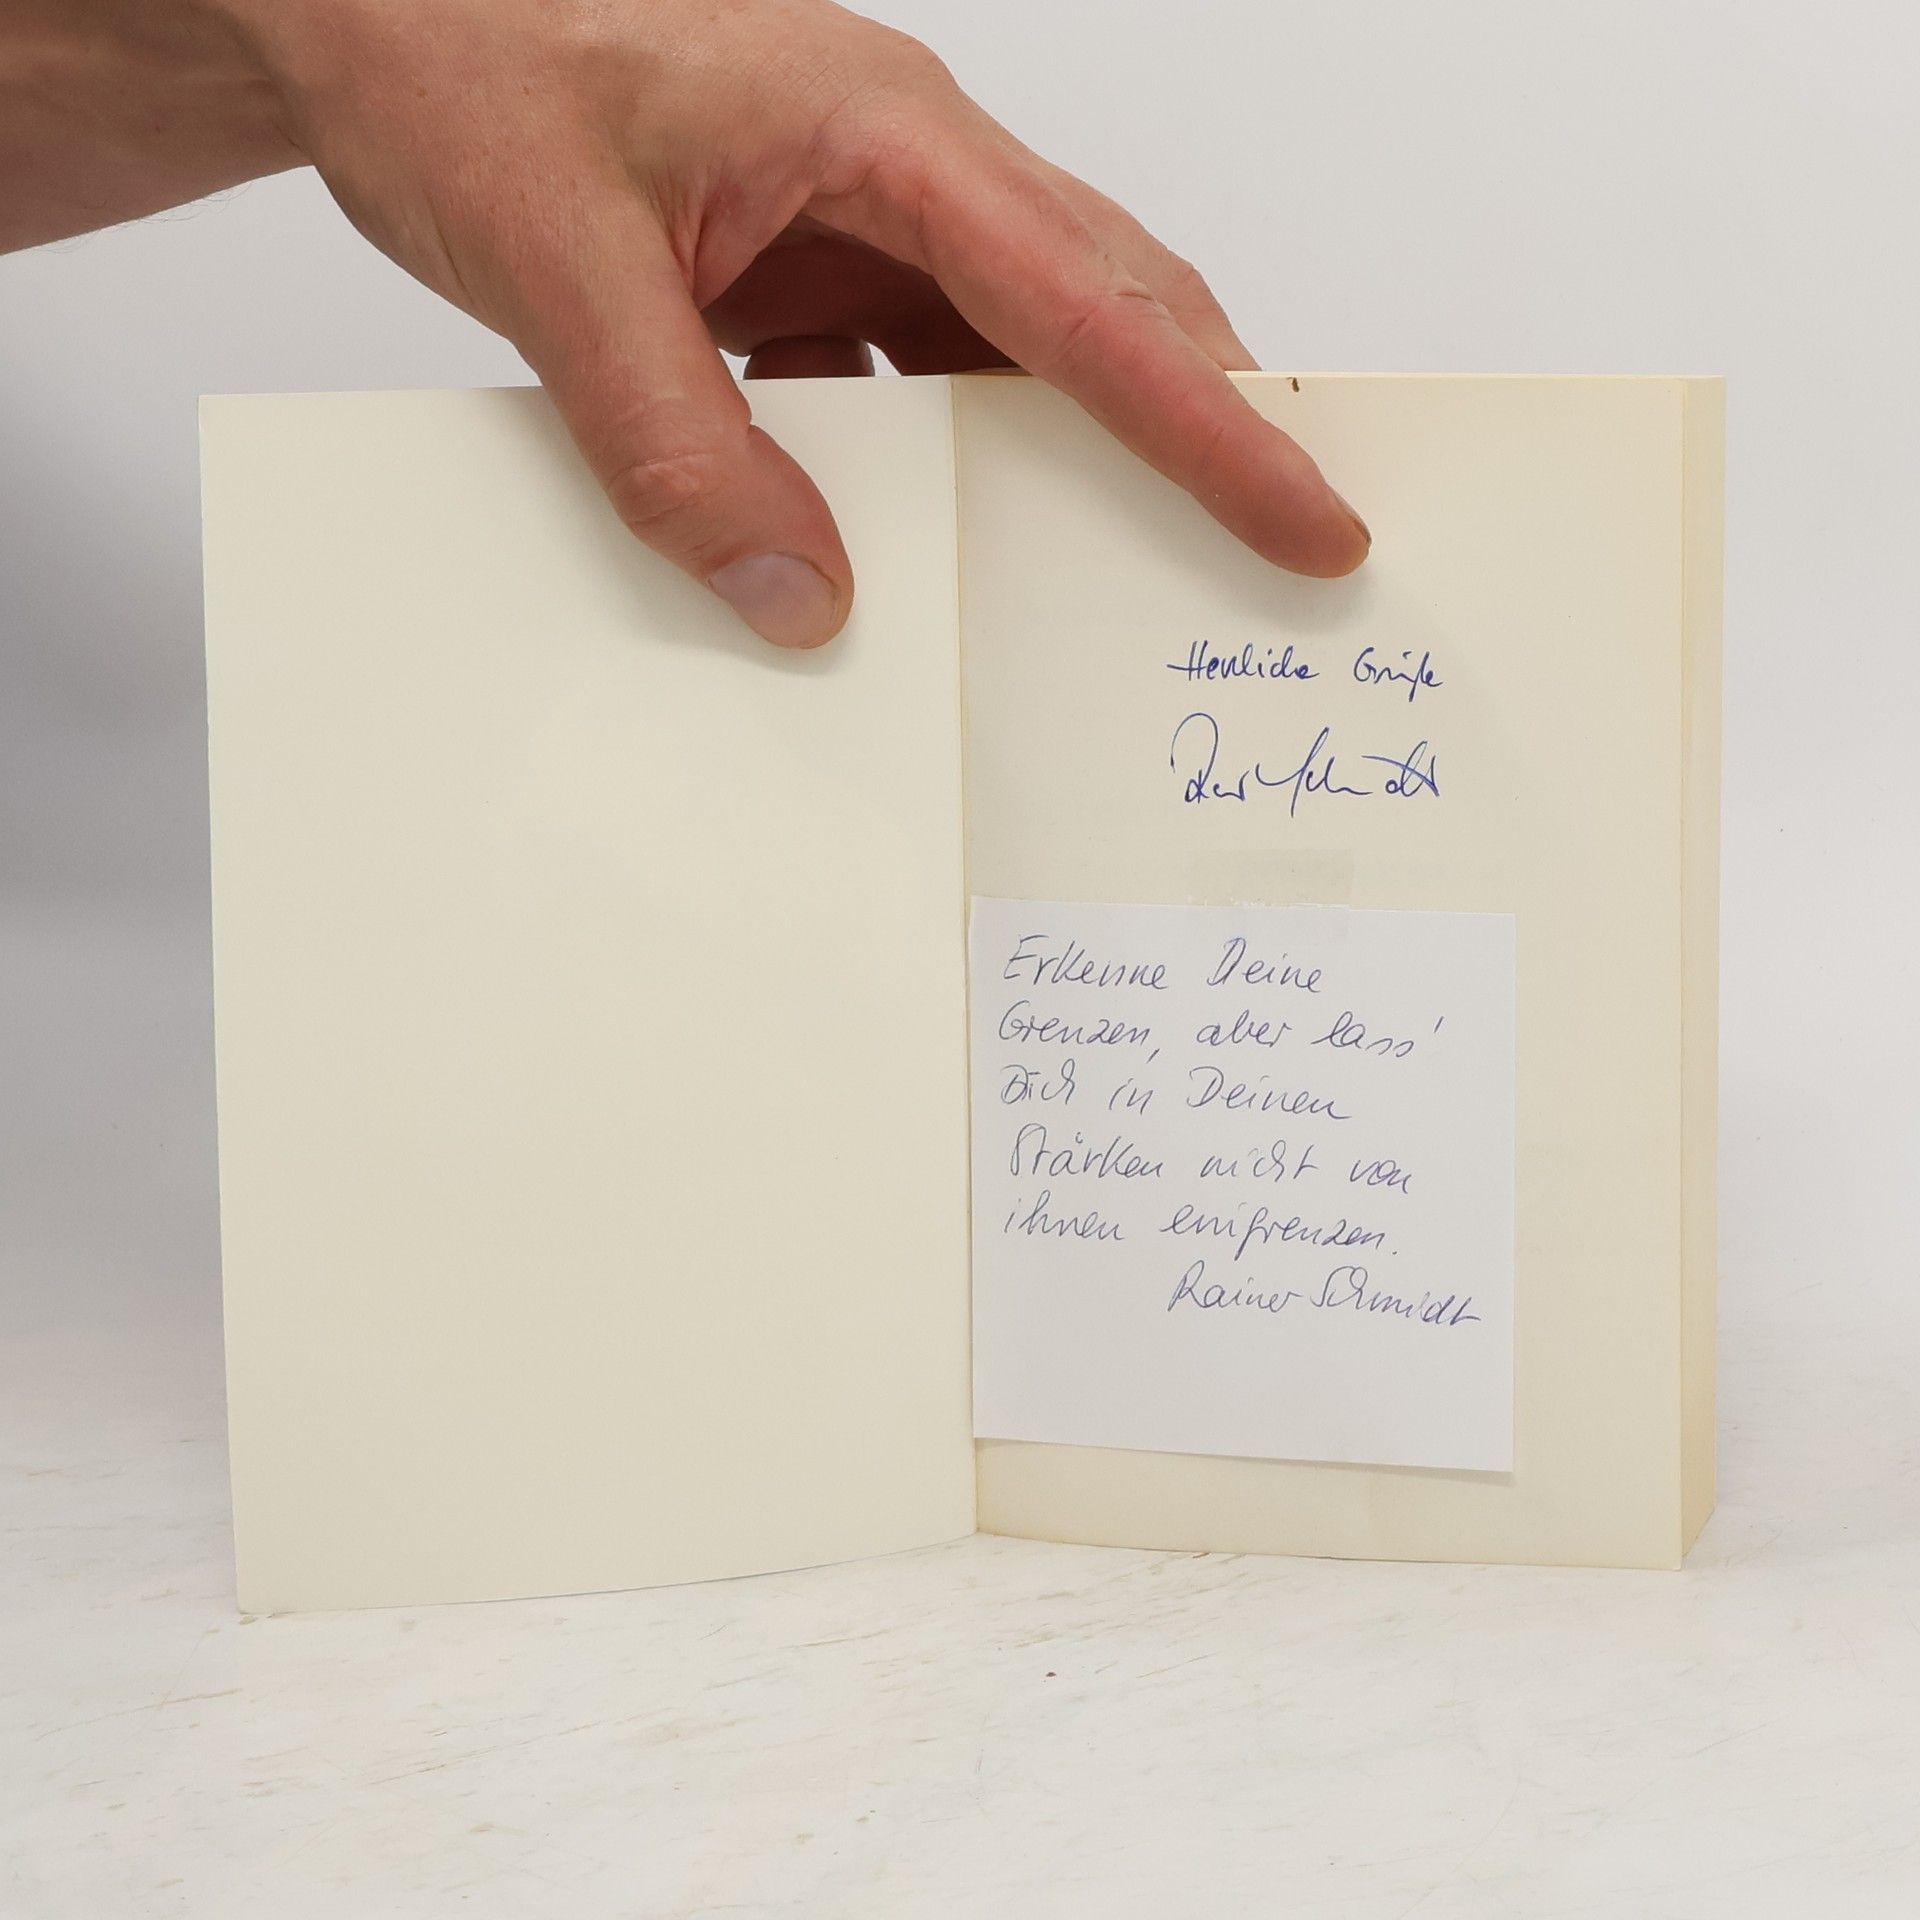 Herzliche Grüße
Rainer Schmidt
Erkenne Deine
Grenzen, aber lass'
Dich in Deinen
Stärken nicht von
ihnen eingrenzen.
Rainer Schmidt